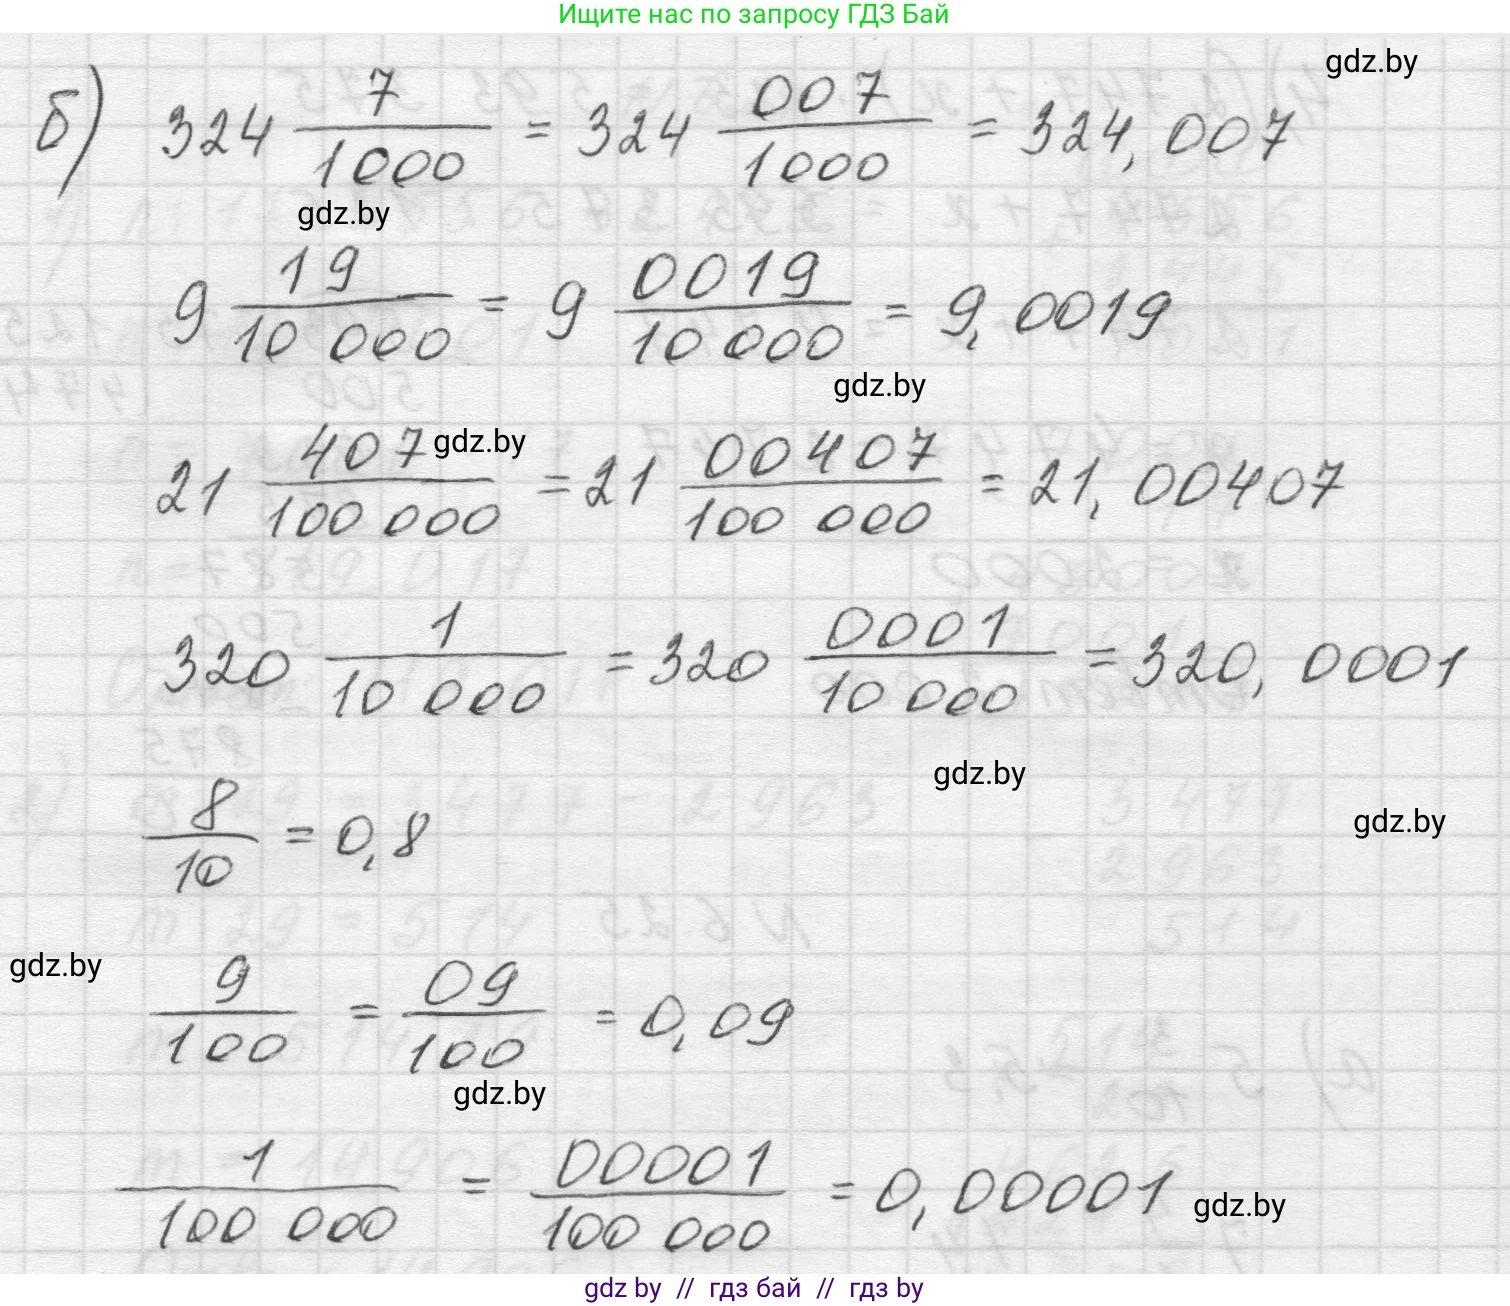 Ищите нас по запросу ГДЗ Бай
gdz.by
б) 324 7/1000 = 324 007/1000 = 324,007
gdz.by
9 19/10 000 = 9 0019/10 000 = 9,0019
gdz.by
gdz.by
21 407/100 000 = 21 00407/100 000 = 21,00407
320 1/10 000 = 320 0001/10 000 = 320,0001
gdz.by
8/10 = 0,8
gdz.by
gdz.by
9/100 = 09/100 = 0,09
gdz.by
1/100 000 = 00001/100 000 = 0,00001
gdz.by
gdz by // гдз бай // гдз by